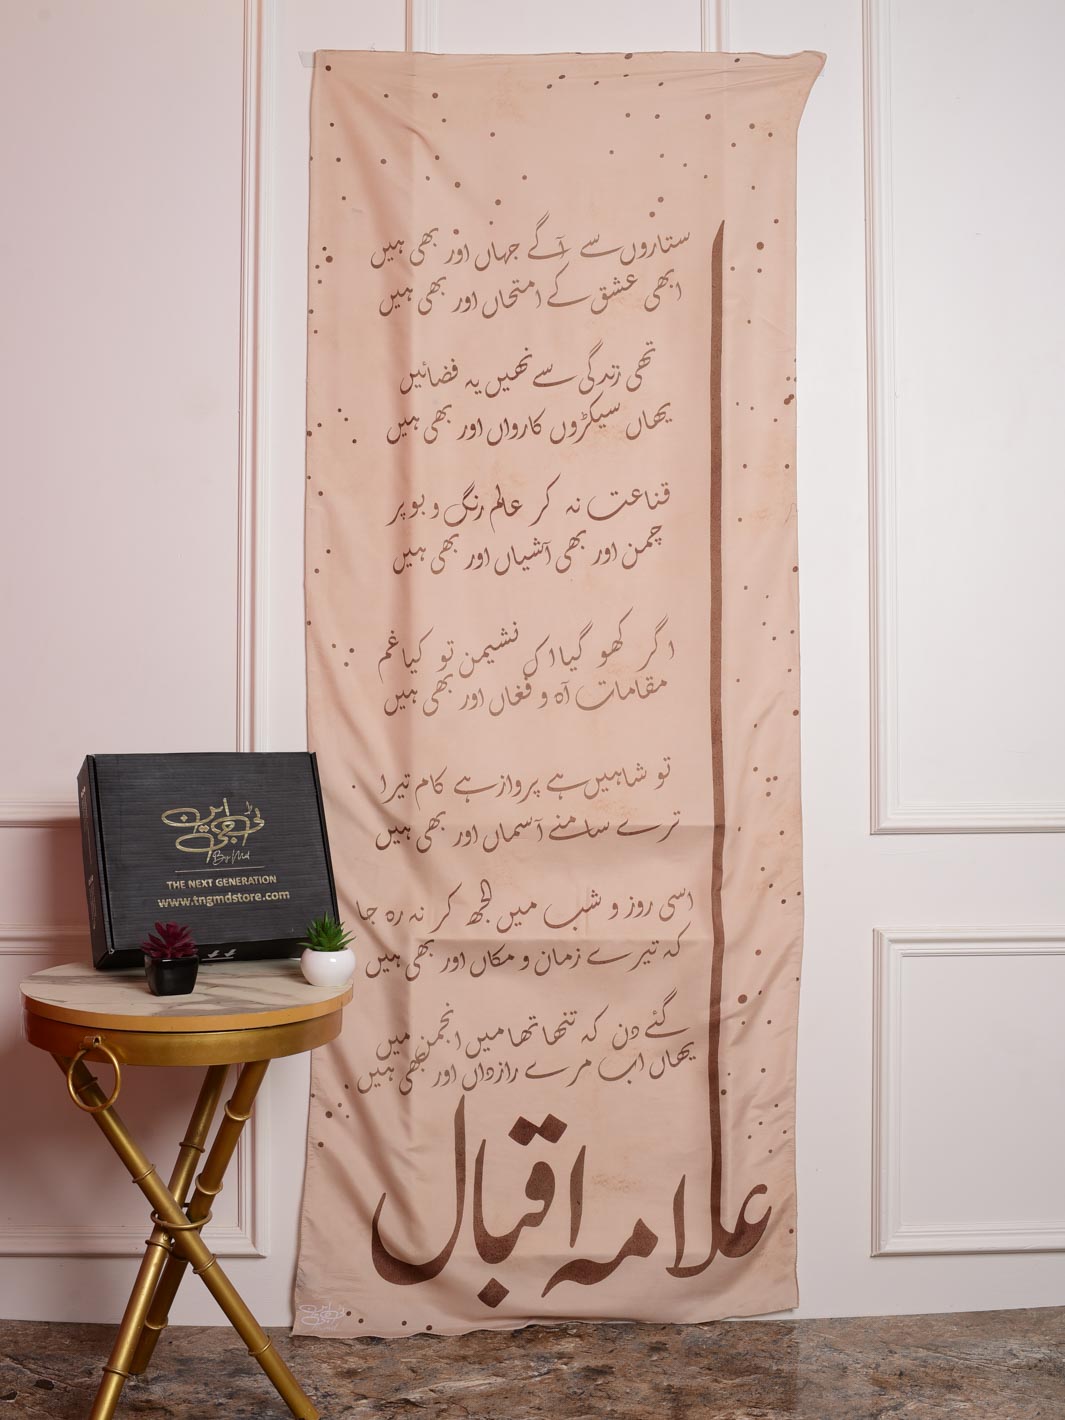 ستاروں سے آگے جہاں اور بھی ہیں
ابھی عشق کے امتحاں اور بھی ہیں
تھی زندگی سے نھیں یہ فضائیں
یھاں سیکڑوں کارواں اور بھی ہیں
قناعت نہ کر عالم رنگ و بو پر
چمن اور بھی آشیاں اور بھی ہیں
اگر کھو گیا اک نشیمن تو کیا غم
مقامات آہ و فغاں اور بھی ہیں
تو شاہیں ہے پرواز ہے کام تیرا
ترے سامنے آسماں اور بھی ہیں
اسی روز و شب میں الجھ کر نہ رہ جا
کہ تیرے زمان و مکاں اور بھی ہیں
گئے دن کہ تنھا تھا میں انجمن میں
یھاں اب مرے رازداں اور بھی ہیں
علامہ اقبال
ٹی این جی
By Md
THE NEXT GENERATION
www.tngmdstore.com